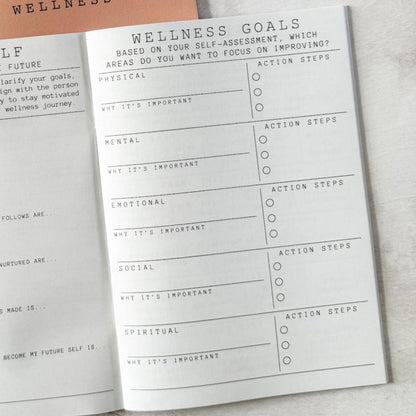 WELLNESS
LF
E FUTURE
larify your goals,
ign with the person
y to stay motivated
wellness journey.
FOLLOWS ARE...
NURTURED ARE...
S MADE IS...
BECOME MY FUTURE SELF IS...
WELLNESS GOALS
BASED ON YOUR SELF-ASSESSMENT, WHICH
AREAS DO YOU WANT TO FOCUS ON IMPROVING?
PHYSICAL
ACTION STEPS
WHY IT'S IMPORTANT
MENTAL
ACTION STEPS
WHY IT'S IMPORTANT
EMOTIONAL
ACTION STEPS
WHY IT'S IMPORTANT
SOCIAL
ACTION STEPS
WHY IT'S IMPORTANT
SPIRITUAL
ACTION STEPS
WHY IT'S IMPORTANT